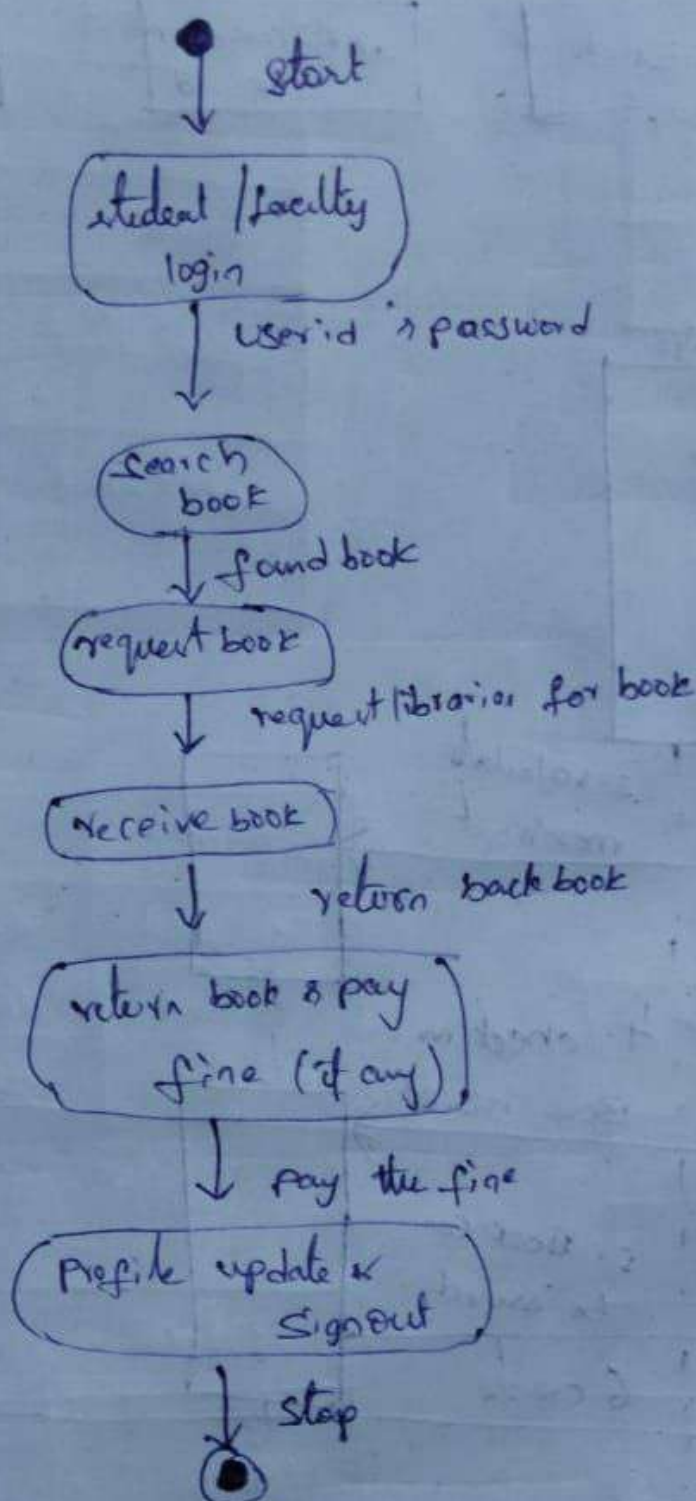 start
student / faculty
login
user id & password
search
book
found book
request book
request librarian for book
receive book
return back book
return book & pay
fine (if any)
pay the fine
Profile update &
Signout
stop